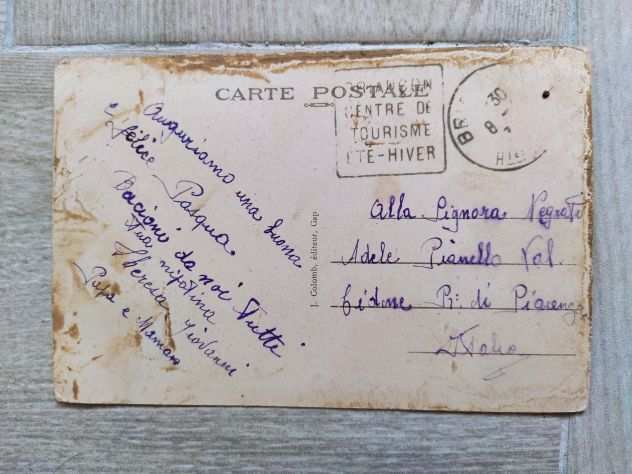 CARTE POSTALE
BRIANÇON
CENTRE DE
TOURISME
ÉTÉ-HIVER
BR
30
8
Auguriamo una buona
e felice Pasqua.
Bacioni da noi tutti
tua nipotina
Theresa Giovanni
Papa e Maman
J. Colomb, éditeur, Gap
Alla Signora
Adele Pianello Val.
Tidone Pr. di Piacenza
Italia